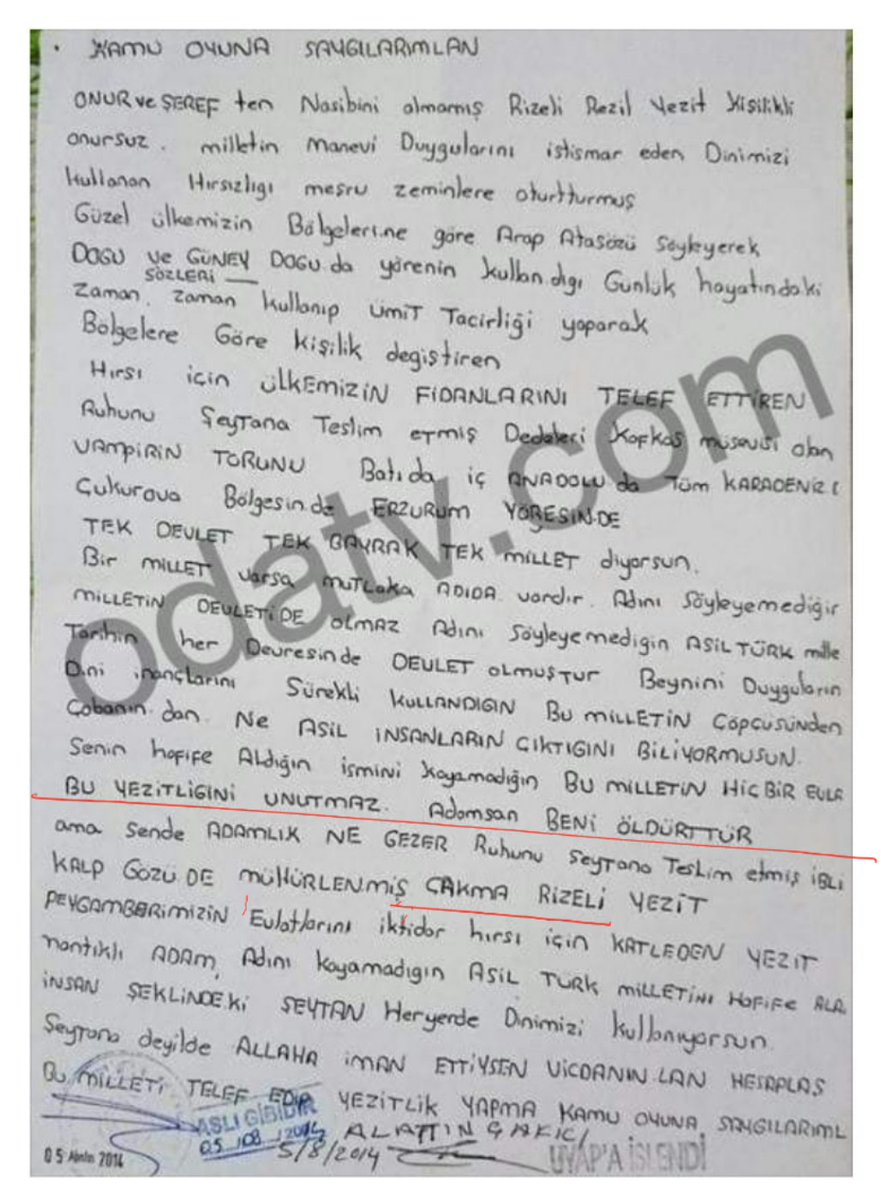 • KAMU OYUNA SAYGILARIMLAN
ONUR ve ŞEREF ten Nasibini almamış Rizeli Rezil Yezit Kişilikli
onursuz. milletin Manevi Duygularını istismar eden Dinimizi
kullanan Hırsızlığı meşru zeminlere oturtturmuş
Güzel ülkemizin Bölgelerine göre Arap Atasözü Söyleyerek
DOGU ve GÜNEY DOGU da yörenin kullandığı Günlük hayatındaki
SÖZLERİ
Zaman. Zaman kullanıp ÜMİT Tacirliği yaparak
Bölgelere Göre kişilik degiştiren
Hırsı için ÜLKEMİZİN FİDANLARINI TELEF ETTİREN
Ruhunu Şeytana Teslim etmiş Dedeleri Kafkas müsevisi olan
VAMPİRİN TORUNU Batıda iç ANADOLU da Tüm KARADENİZ
Çukurova Bölgesin.de ERZURUM YÖRESİN.DE
TEK DEVLET TEK BAYRAK TEK MİLLET diyorsun.
Bir MİLLET varsa MUTLaka ADIDA vardır. Adını Söyleyemediğir
MİLLETİN DEVLETİDE OLMAZ Adını Söyleyemedigin ASİL TÜRK mille
Tarihin her Devresinde DEVLET OLMUŞTUR Beynini Duyguların
Dini inançlarını Sürekli KULLANDIGIN BU MİLLETİN Çöpçüsünden
Çobanın.dan. Ne ASİL İNSANLARIN ÇIKTIGINI BİLİYORMUSUN.
Senin hafife Aldığın ismini Koyamadığın BU MİLLETİN HİÇ BİR EVLA
BU YEZİTLİGİNİ UNUTMAZ. Adamsan BENİ ÖLDÜRTTÜR
ama Sende ADAMLIK NE GEZER Ruhunu Şeytana Teslim etmiş İBLİ
KALP GÖZÜ.DE MÜHÜRLENMİŞ ÇAKMA RİZELİ YEZİT
PEYGAMBERİMİZİN Evlatlarını iktidar hırsı için KATLEDEN YEZİT
mantıklı ADAM, Adını Koyamadıgın ASİL TÜRK MİLLETİNİ HAFİFE ALA
İNSAN ŞEKLİNDEKİ ŞEYTAN Heryerde Dinimizi kullanıyorsun.
Şeytana deyilde ALLAHA İMAN ETTİYSEN VİCDANIN.LAN HESAPLAŞ
BU MİLLETİ TELEF EDİP YEZİTLİK YAPMA KAMU OYUNA SAYGILARIML
ASLI GİBİDİR
05/08/2014
ALATTİN ÇAKICI
5/8/2014
UYAP'A İSLENDİ
05 2014
odatv.com